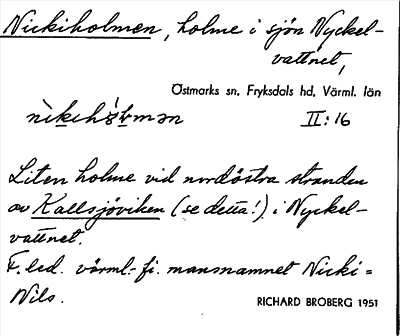 Nickiholmen, holme i sjön Nyckel-
vattnet,
Östmarks sn, Fryksdals hd, Värml. län
II:16
Liten holme vid nordöstra stranden
av Kallsjöviken (se detta!) i Nyckel-
vattnet.
F. led. värml.-fi. mansnamnet Nicki =
Nils.
RICHARD BROBERG 1951